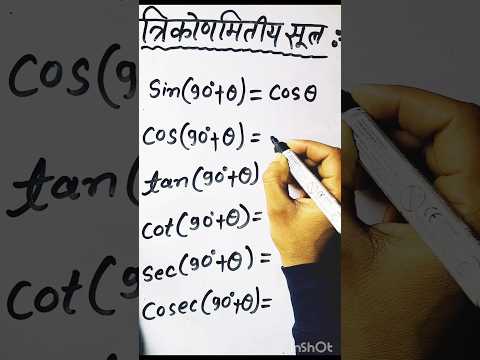 त्रिकोणमितीय सूत्र :-
Sin(90°+θ) = Cosθ
Cos(90°+θ) =
tan(90°+θ)
Cot(90°+θ) =
Sec(90°+θ) =
Cosec(90°+θ) =